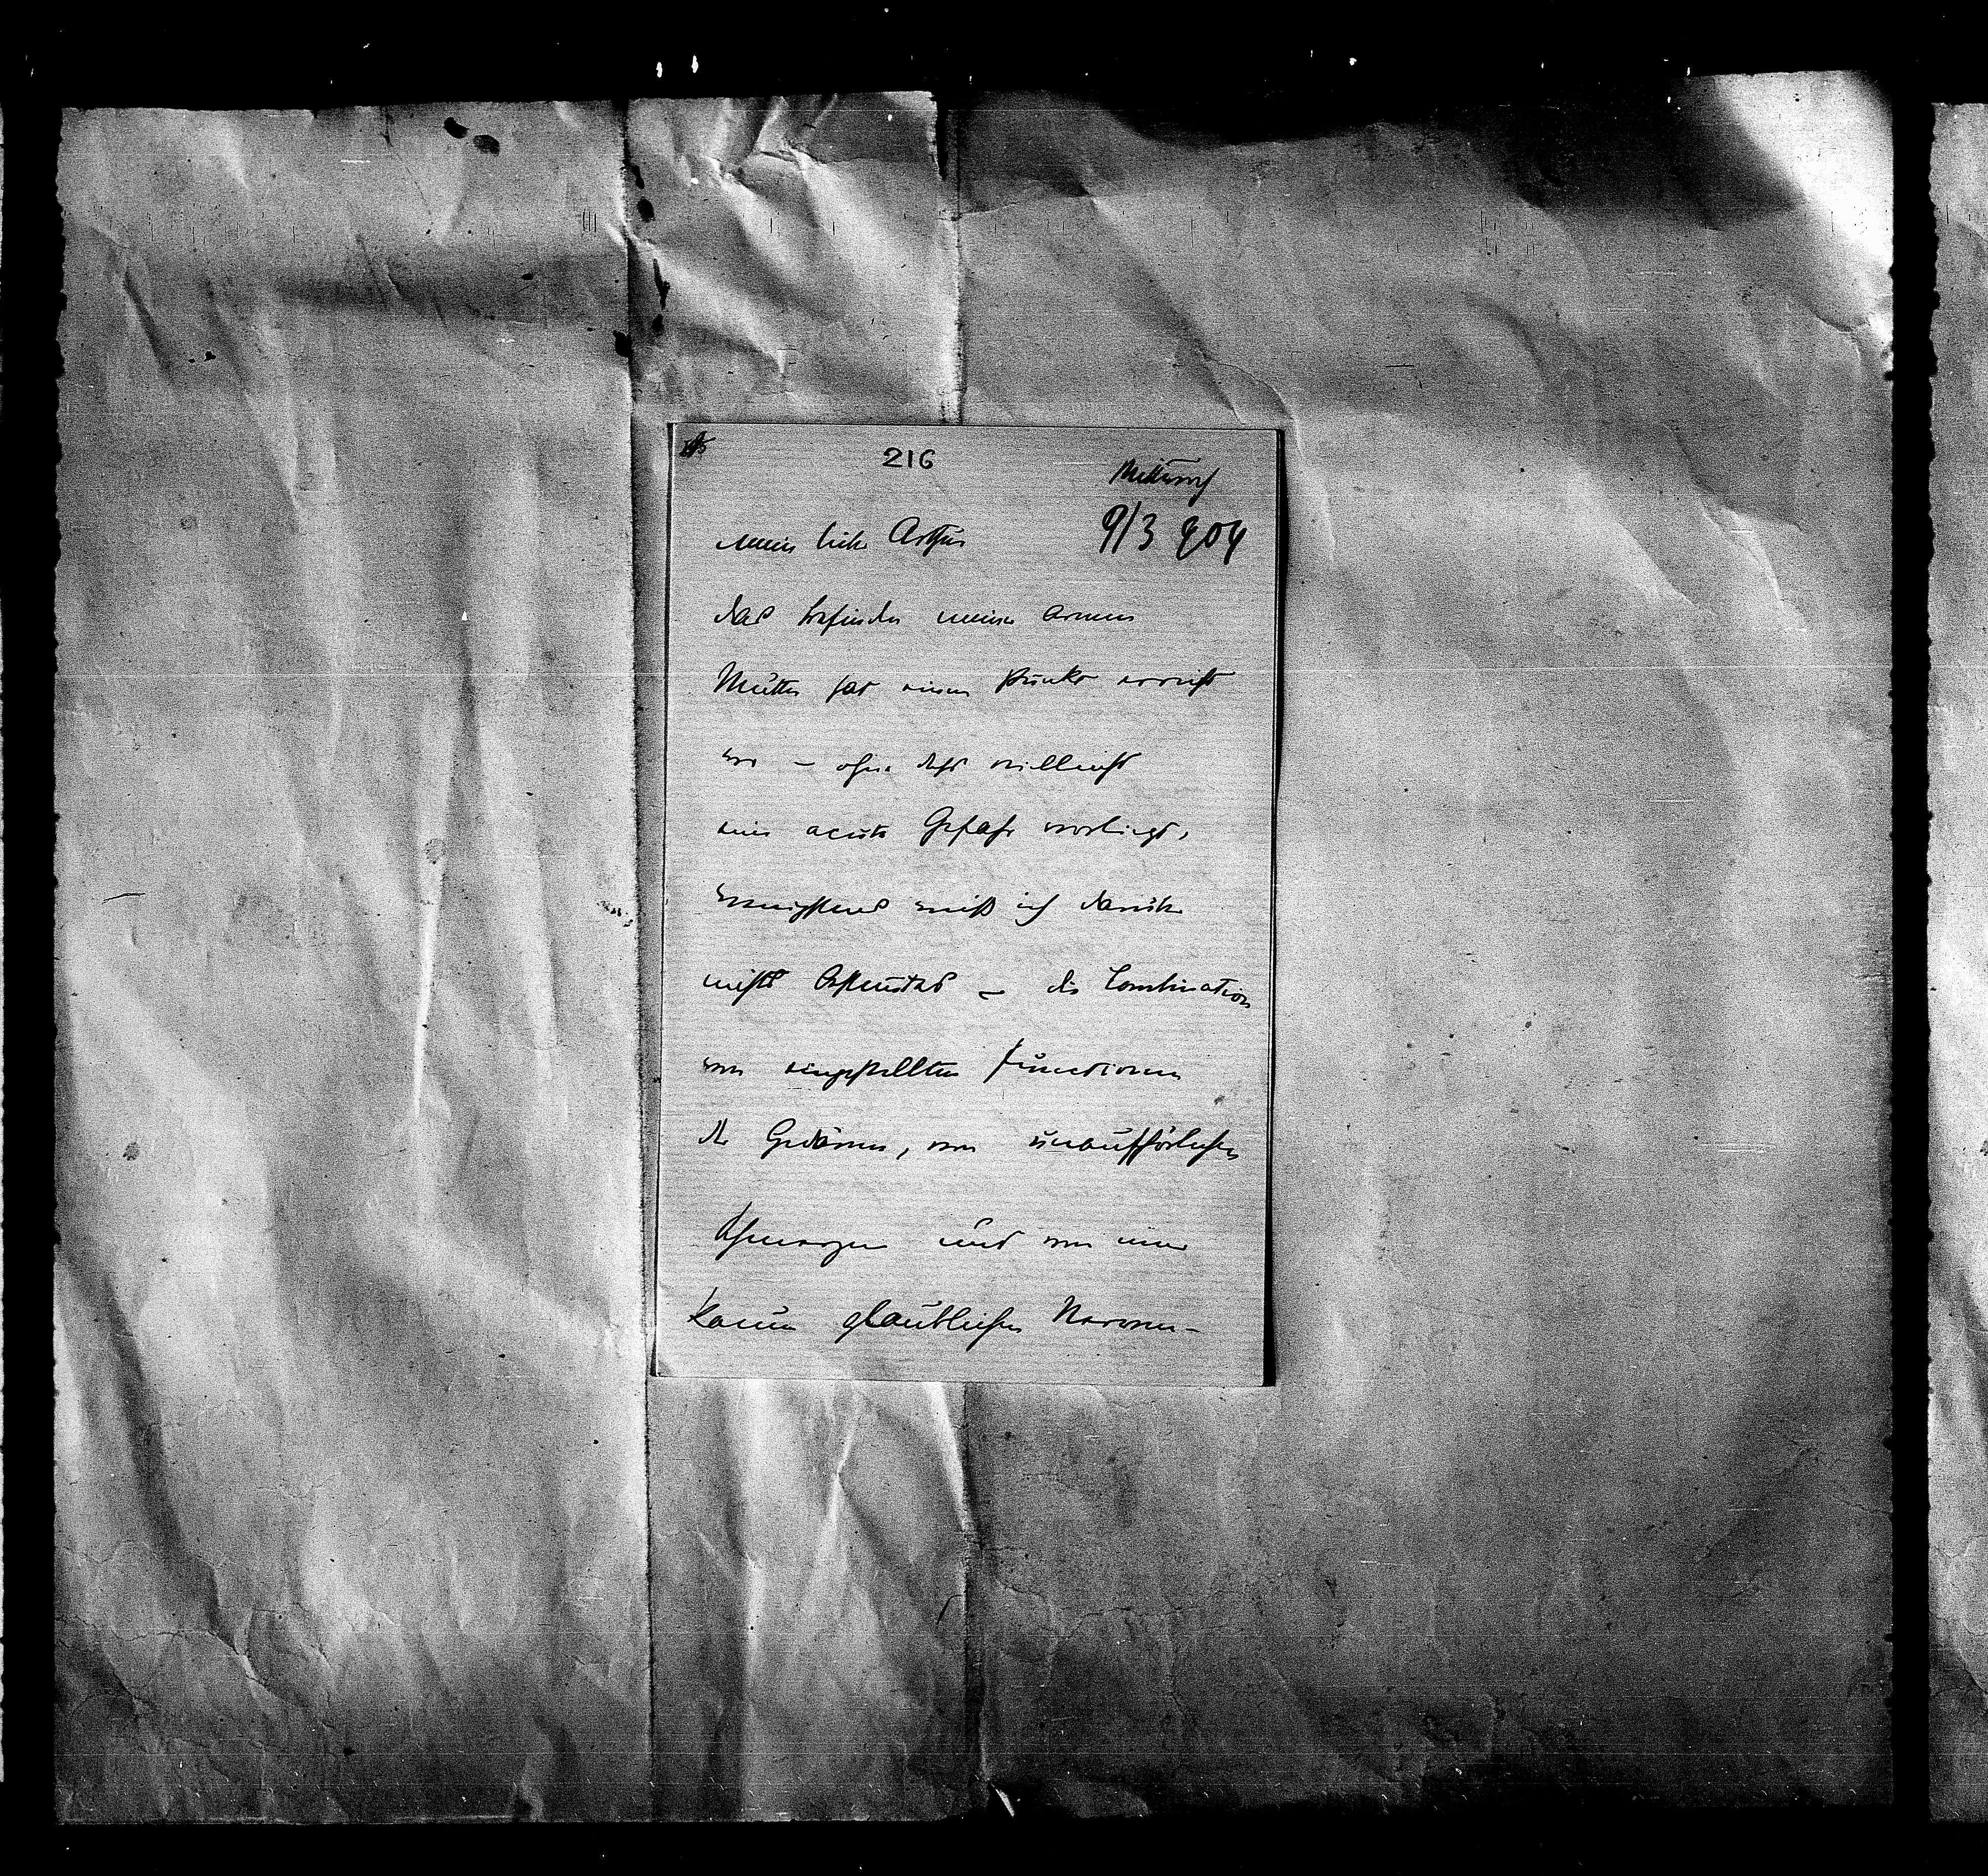 216
Mittwoch
9/3 904
mein lieber Arthur
das Befinden meiner armen
Mutter hat einen Punkt erreicht
wo – ohne daß vielleicht
eine acute Gefahr vorliegt,
wenigstens weiß ich darüber
nichts Bestimmtes – die Combination
von eingestellten Functionen
der Gedärme, von unaufhörlichen
Schmerzen und von einer
kaum glaublichen Nerven-